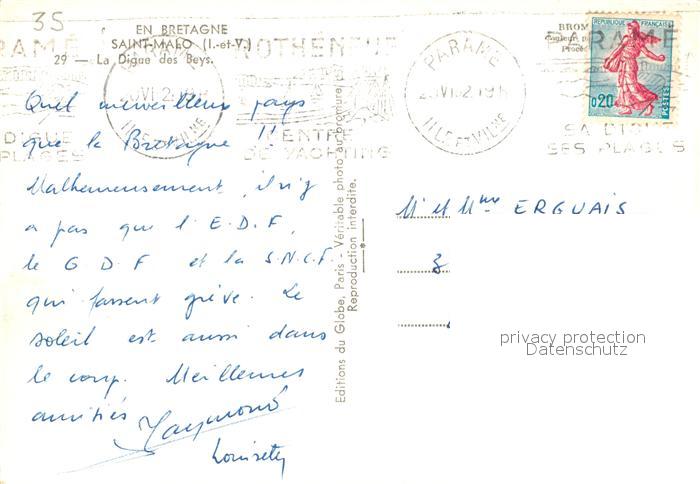 35
EN BRETAGNE
SAINT-MALO (I.-et-V.)
29 - La Digue des Beys.
Quel merveilleux pays
que la Bretagne !!
Malheureusement, il n'y
a pas que l'E.D.F,
le G D F et la S.N.C.F.
qui fassent grève. Le
soleil est aussi dans
le coup. Meilleures
amitiés
Raymond
Louisety
Editions du Globe, Paris - Véritable photo au bromure
Reproduction interdite.
PARAMÉ
ROTHENEUF
SA DIGUE
SES PLAGES
CENTRE
DE YACHTING
PARAMÉ
ILLE ET VILAINE
BROM
REPUBLIQUE FRANÇAISE
0,20
POSTES
PARAMÉ
SA DIGUE
SES PLAGES
M et Mme ERGUAIS
privacy protection
Datenschutz